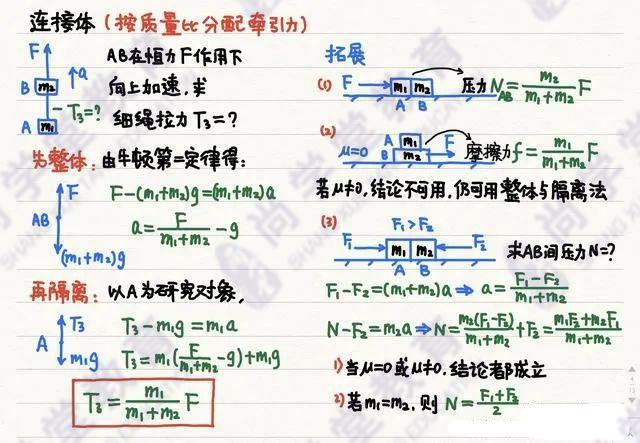 连接体（按质量比分配牵引力）
F
a
B m₂
T₃=?
A m₁
AB在恒力F作用下
向上加速,求
细绳拉力T₃=?
先整体: 由牛顿第二定律得:
F
AB
(m₁+m₂)g
F-(m₁+m₂)g=(m₁+m₂)a
a=F/(m₁+m₂)-g
再隔离: 以A为研究对象,
T₃
A
m₁g
T₃-m₁g=m₁a
T₃=m₁(F/(m₁+m₂)-g)+m₁g
T₃=m₁/(m₁+m₂) F
拓展
(1) F m₁ m₂ 压力N_AB=m₂/(m₁+m₂) F
A B
(2)
μ=0 A m₁ F 摩擦力f=m₁/(m₁+m₂) F
B m₂
若μ≠0,结论不可用,仍可用整体与隔离法
(3) F₁>F₂
F₁ m₁ m₂ F₂ 求AB间压力N=?
A B
F₁-F₂=(m₁+m₂)a ⇒ a=(F₁-F₂)/(m₁+m₂)
N-F₂=m₂a ⇒ N=m₂(F₁-F₂)/(m₁+m₂)+F₂=(m₁F₂+m₂F₁)/(m₁+m₂)
1) 当μ=0或μ≠0,结论都成立
2) 若m₁=m₂, 则 N=(F₁+F₂)/2